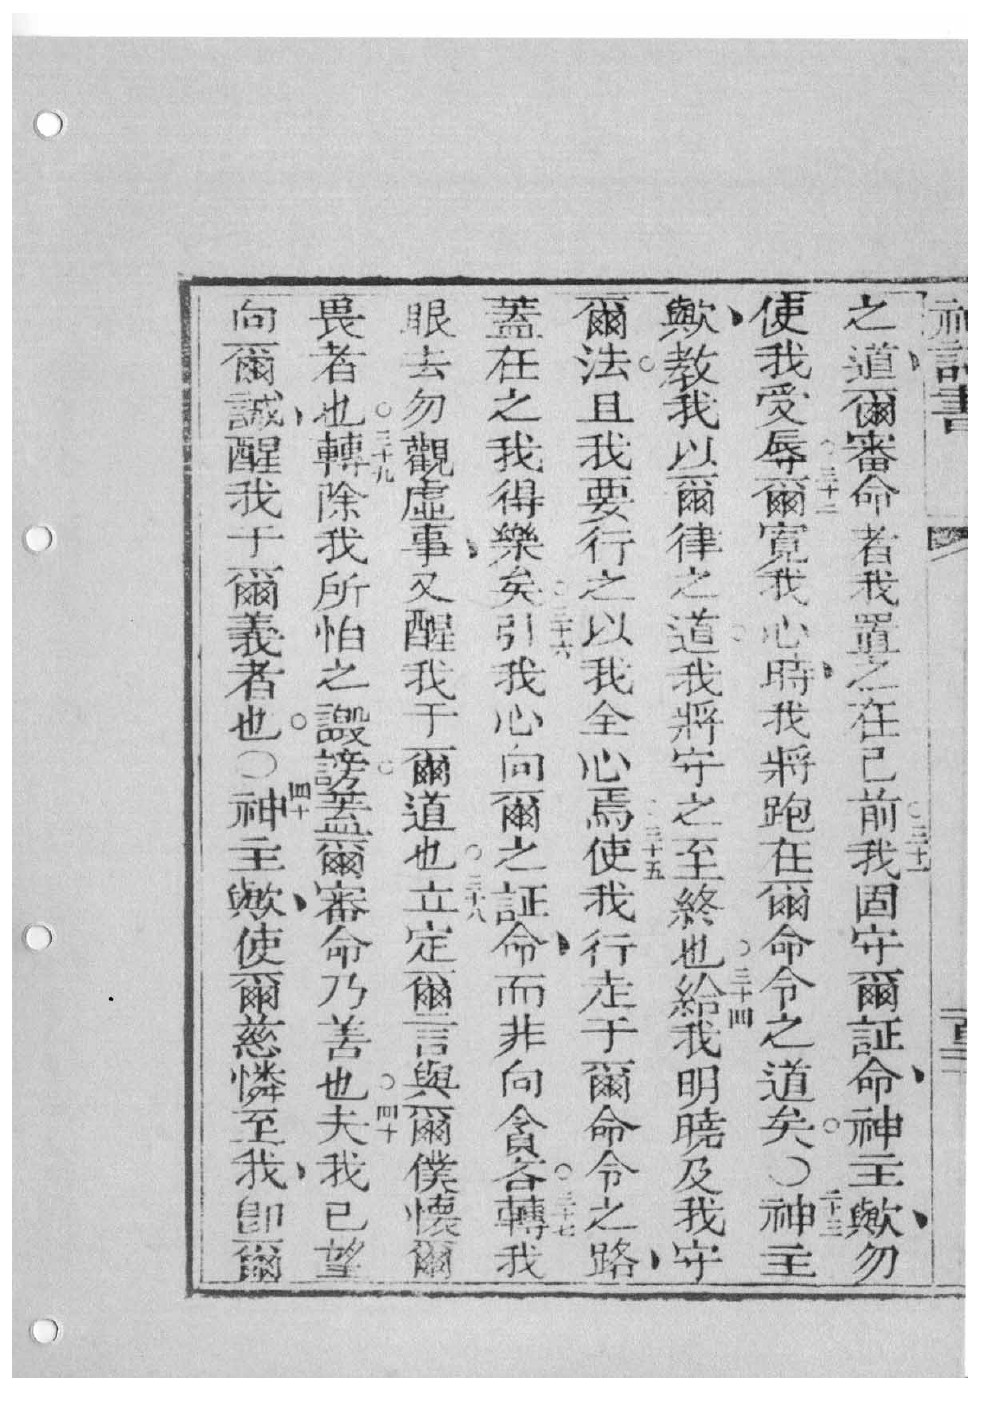 神詩書
之道爾審命者我置之在己前。三十一我固守爾証命神主歟勿
使我受辱。三十二爾寬我心時我將跑在爾命令之道矣。〇三十三神主
歟教我以爾律之道我將守之至終也。三十四給我明曉及我守
爾法且我要行之以我全心焉。三十五使我行走于爾命令之路
蓋在之我得樂矣。三十六引我心向爾之証命而非向貪吝。三十七轉我
眼去勿觀虛事又醒我于爾道也。三十八立定爾言與爾僕懷爾
畏者也。三十九轉除我所怕之譭謗。蓋爾審命乃善也。四十夫我已望
向爾誠醒我于爾義者也。〇四十神主歟使爾慈憐至我卽爾